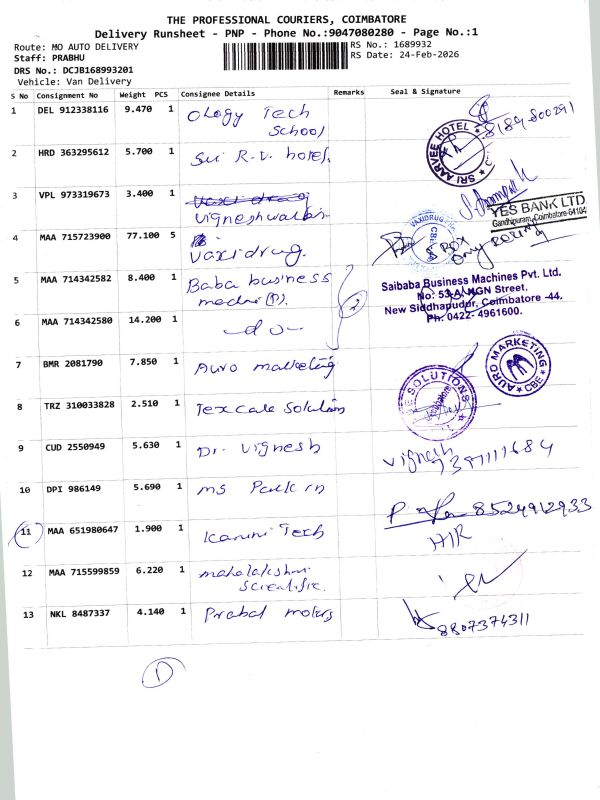 THE PROFESSIONAL COURIERS, COIMBATORE
Delivery Runsheet - PNP - Phone No.:9047080280 - Page No.:1
Route: MO AUTO DELIVERY
RS No.: 1689932
Staff: PRABHU
RS Date: 24-Feb-2026
DRS No.: DCJB168993201
Vehicle: Van Delivery
S No Consignment No Weight PCS Consignee Details Remarks Seal & Signature
1 DEL 912338116 9.470 1 Ology Tech
School
2 HRD 363295612 5.700 1 Sri R.V. hotel.
SRI AARVEE HOTEL
3 VPL 973319673 3.400 1
Vigneshwar
YES BANK LTD
Gandhipuram, Coimbatore-64104
4 MAA 715723900 77.100 5 Vaxidrug.
VAXIDRUG
5 BOX
5 MAA 714342582 8.400 1 Baba business
Saibaba Business Machines Pvt. Ltd.
No: 53-A, NGN Street,
New Siddhapudur, Coimbatore -44.
Ph: 0422- 4961600.
6 MAA 714342580 14.200 1 -do-
7 BMR 2081790 7.850 1 Auro marketing
AURO MARKETING
CBE
8 TRZ 310033828 2.510 1 Texcare Solutions
SOLUTIONS
9 CUD 2550949 5.630 1 Dr. Vignesh
Vignesh
7397111684
10 DPI 986149 5.690 1 ms Park in
8524912933
11 MAA 651980647 1.900 1 Kanini Tech
12 MAA 715599859 6.220 1 mahalakshmi
Scientific.
13 NKL 8487337 4.140 1 Prabal motors
8807374311
1